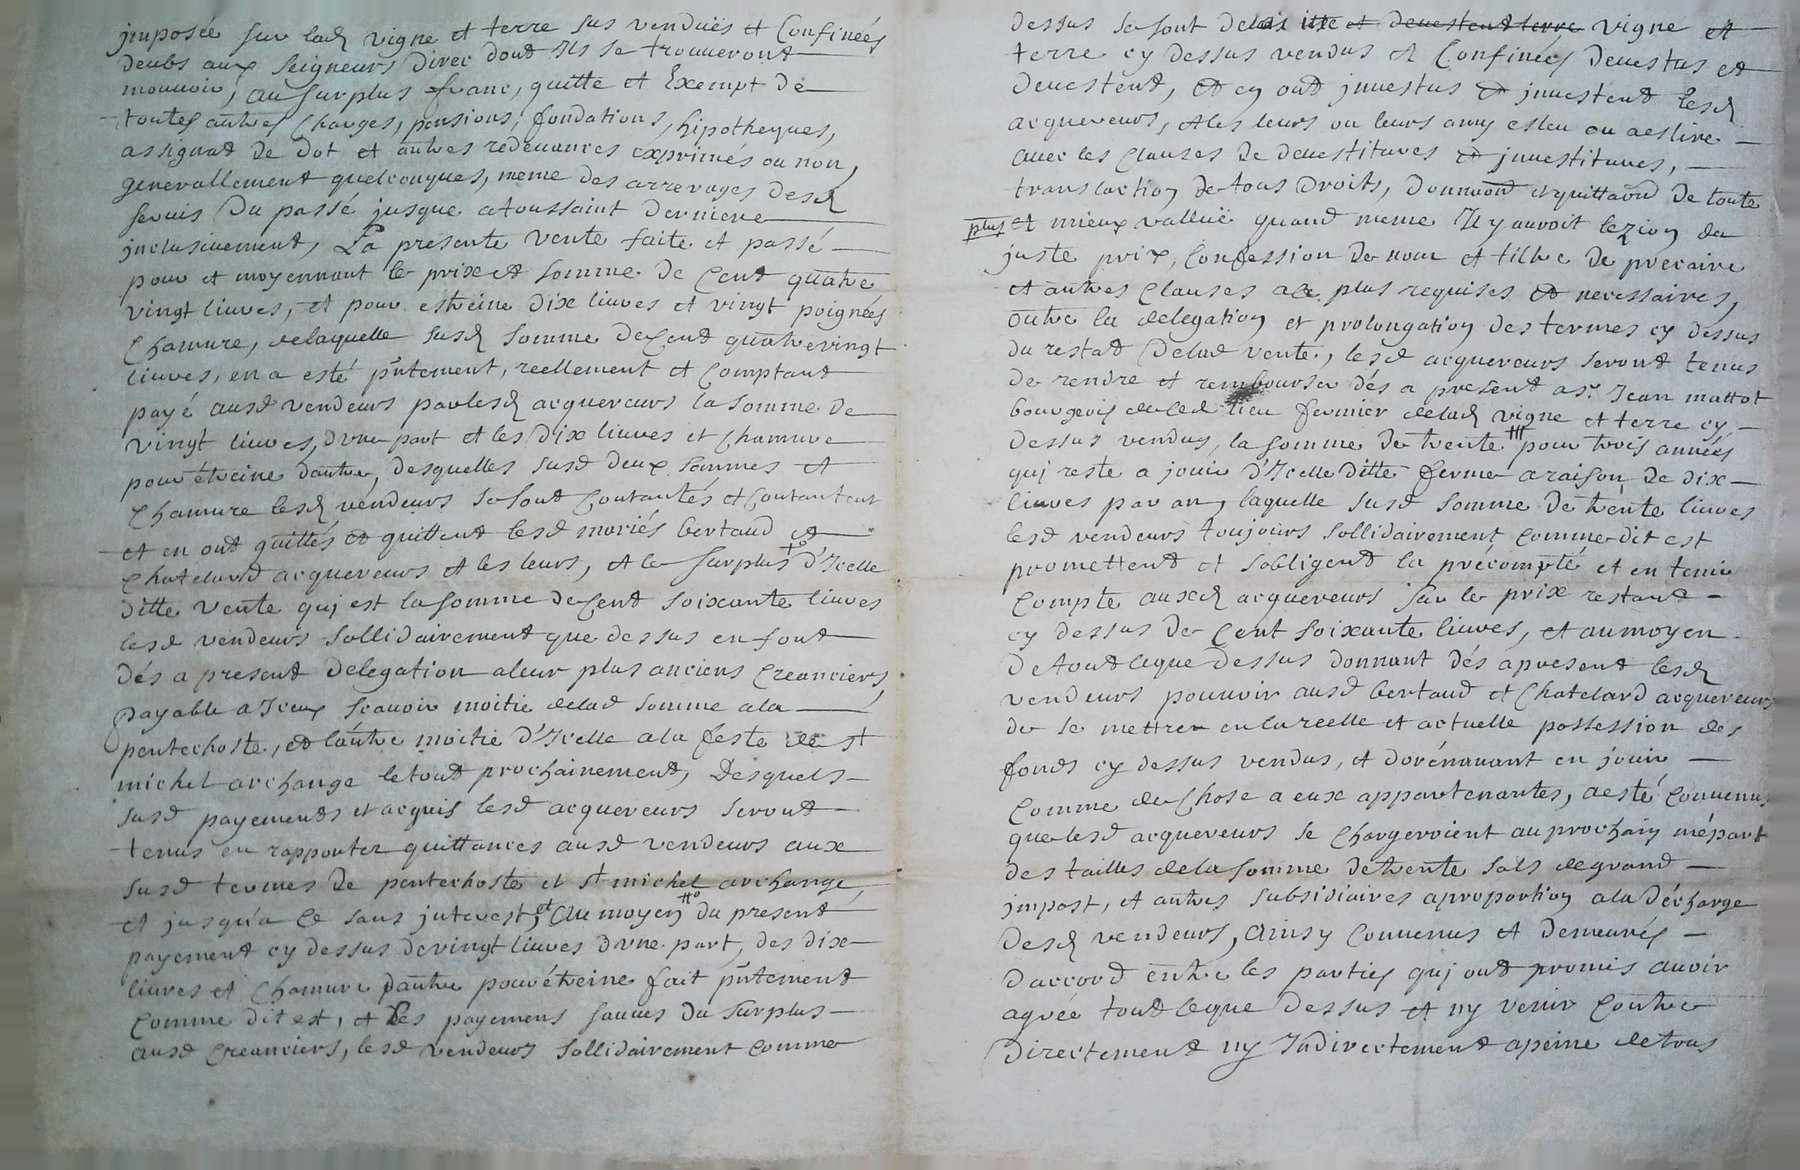 jmposée sur lad vigne et terre sus venduës et Confinées
deubs aux seigneurs direc dont Ils se trouueront
mouuoir, au surplus franc, quitte et Exempt de
toutes autres Charges, pensions, fondations, hipotheques,
assignat de dot et autres redeuances exprimés ou non,
generallement quelconques, meme des arrerages desd
seruis Du passé jusque a toussaint derniere
jnclusiuement, La presente vente faite et passé
pour et moyennant le prix et somme de Cent quatre
vingt liures, et pour estreine dix liures et vingt poignées
Chanure, de laquelle susd somme de Cent quatrevingt
liures, en a esté pñtement, reellement et Comptant
payé ausd vendeurs par lesd acquereurs la somme de
vingt liures, d'vne part et les Dix liures et chanure
pour étreine dautre, desquelles susd deux sommes et
Chanure lesd vendeurs se sont Contantés et Contantent
et en ont quittés et quittent lesd mariés bertaud et
Chatelard acquereurs et les leurs, et le surplus d'Icelle
ditte vente quj est la somme de Cent soixante liures
lesd vendeurs sollidairement que dessus en font
dés a present delegation a leur plus anciens Creanciers,
payable a Iceux scauoir moitie delad somme a la
pentechoste, et l'autre moitie d'Icelle a la feste de st
michel archange le tout prochainement, Desquels
susd payements et acquis lesd acquereurs seront
tenus en rapporter quittances ausd vendeurs aux
susd termes de pentechoste et st michel archange,
et jusqu'a Ce sans jnterest, et Au moyen du present
payement cy dessus de vingt liures d'vne part, des dix
liures et Chanure dautre pour étreine fait pñtement
Comme dit est, et Les payemens sauues Du surplus
ausd Creanciers, lesd vendeurs sollidairement comme
dessus se sont vigne et
terre cy dessus vendus et Confinées deuestus et
deuestent, et en ont jnuestus et jnuestent lesd
acquereurs, et les leurs ou leurs amy esleu ou a eslire
auec les Clauses de deuestitures et jnuestitures,
translaction de tous Droits, donnaond et quittaond de toute
plus et mieux valluë quand meme Il y auroit lezion du
juste prix, Confession de nom et tiltre de precaire
et autres Clauses a Ce plus requises et necessaires,
outre la delegation et prolongation des termes cy dessus
du restat Delad vente, lesd acquereurs seront tenus
de rendre et rembourser dés a present a sr. Jean mattot
bourgeois dud lieu fermier delad vigne et terre cy
dessus vendus, la somme de trente ttt pour trois années
quj reste a jouir d'Icelle ditte ferme a raison de dix
liures par an, laquelle susd somme De trente liures
lesd vendeurs toujours sollidairement Comme dit est
promettent et s'obligent la précompté et en tenir
Compte auxd acquereurs sur le prix restant
cy dessus de Cent soixante liures, et au moyen
De tout Ceque Dessus donnant dés a present lesd
vendeurs pouuoir ausd bertaud et Chatelard acquereurs
de se mettre en la reelle et actuelle possession des
fonds cy dessus vendus, et dorénauant en jouir
Comme de Chose a eux appartenantes, a esté Conuenu
que lesd acquereurs se Chargeroient au prochain mépart
des tailles de la somme de trente sols de grand
jmpost, et autres subsidiaires a proportion a la décharge
Desd vendeurs, Ainsy Conuenus et demeurés
D'accord entre les parties quj ont promis auoir
agréé tout Ceque Dessus et ny venir Contre
Directement ny Indirectement a peine de tous